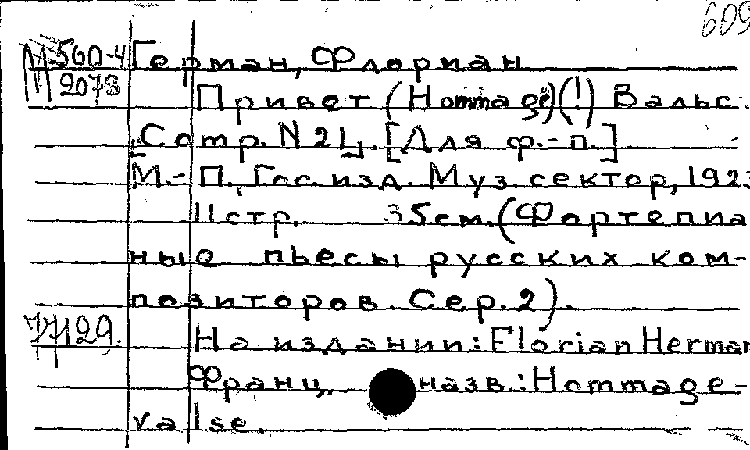 609
М 560-4 Герман, Флориан
2073 Привет (Hommage) (!) Вальс.
Comp. N 24. [Для ф.-п.]
М.-П., Гос. изд. Муз. сектор, 1923
11 стр. 35 см. (Фортепиа
ные пьесы русских ком-
позиторов. Сер. 2).
На издании: Florian Herman
Франц. назв.: Hommage-
valse.